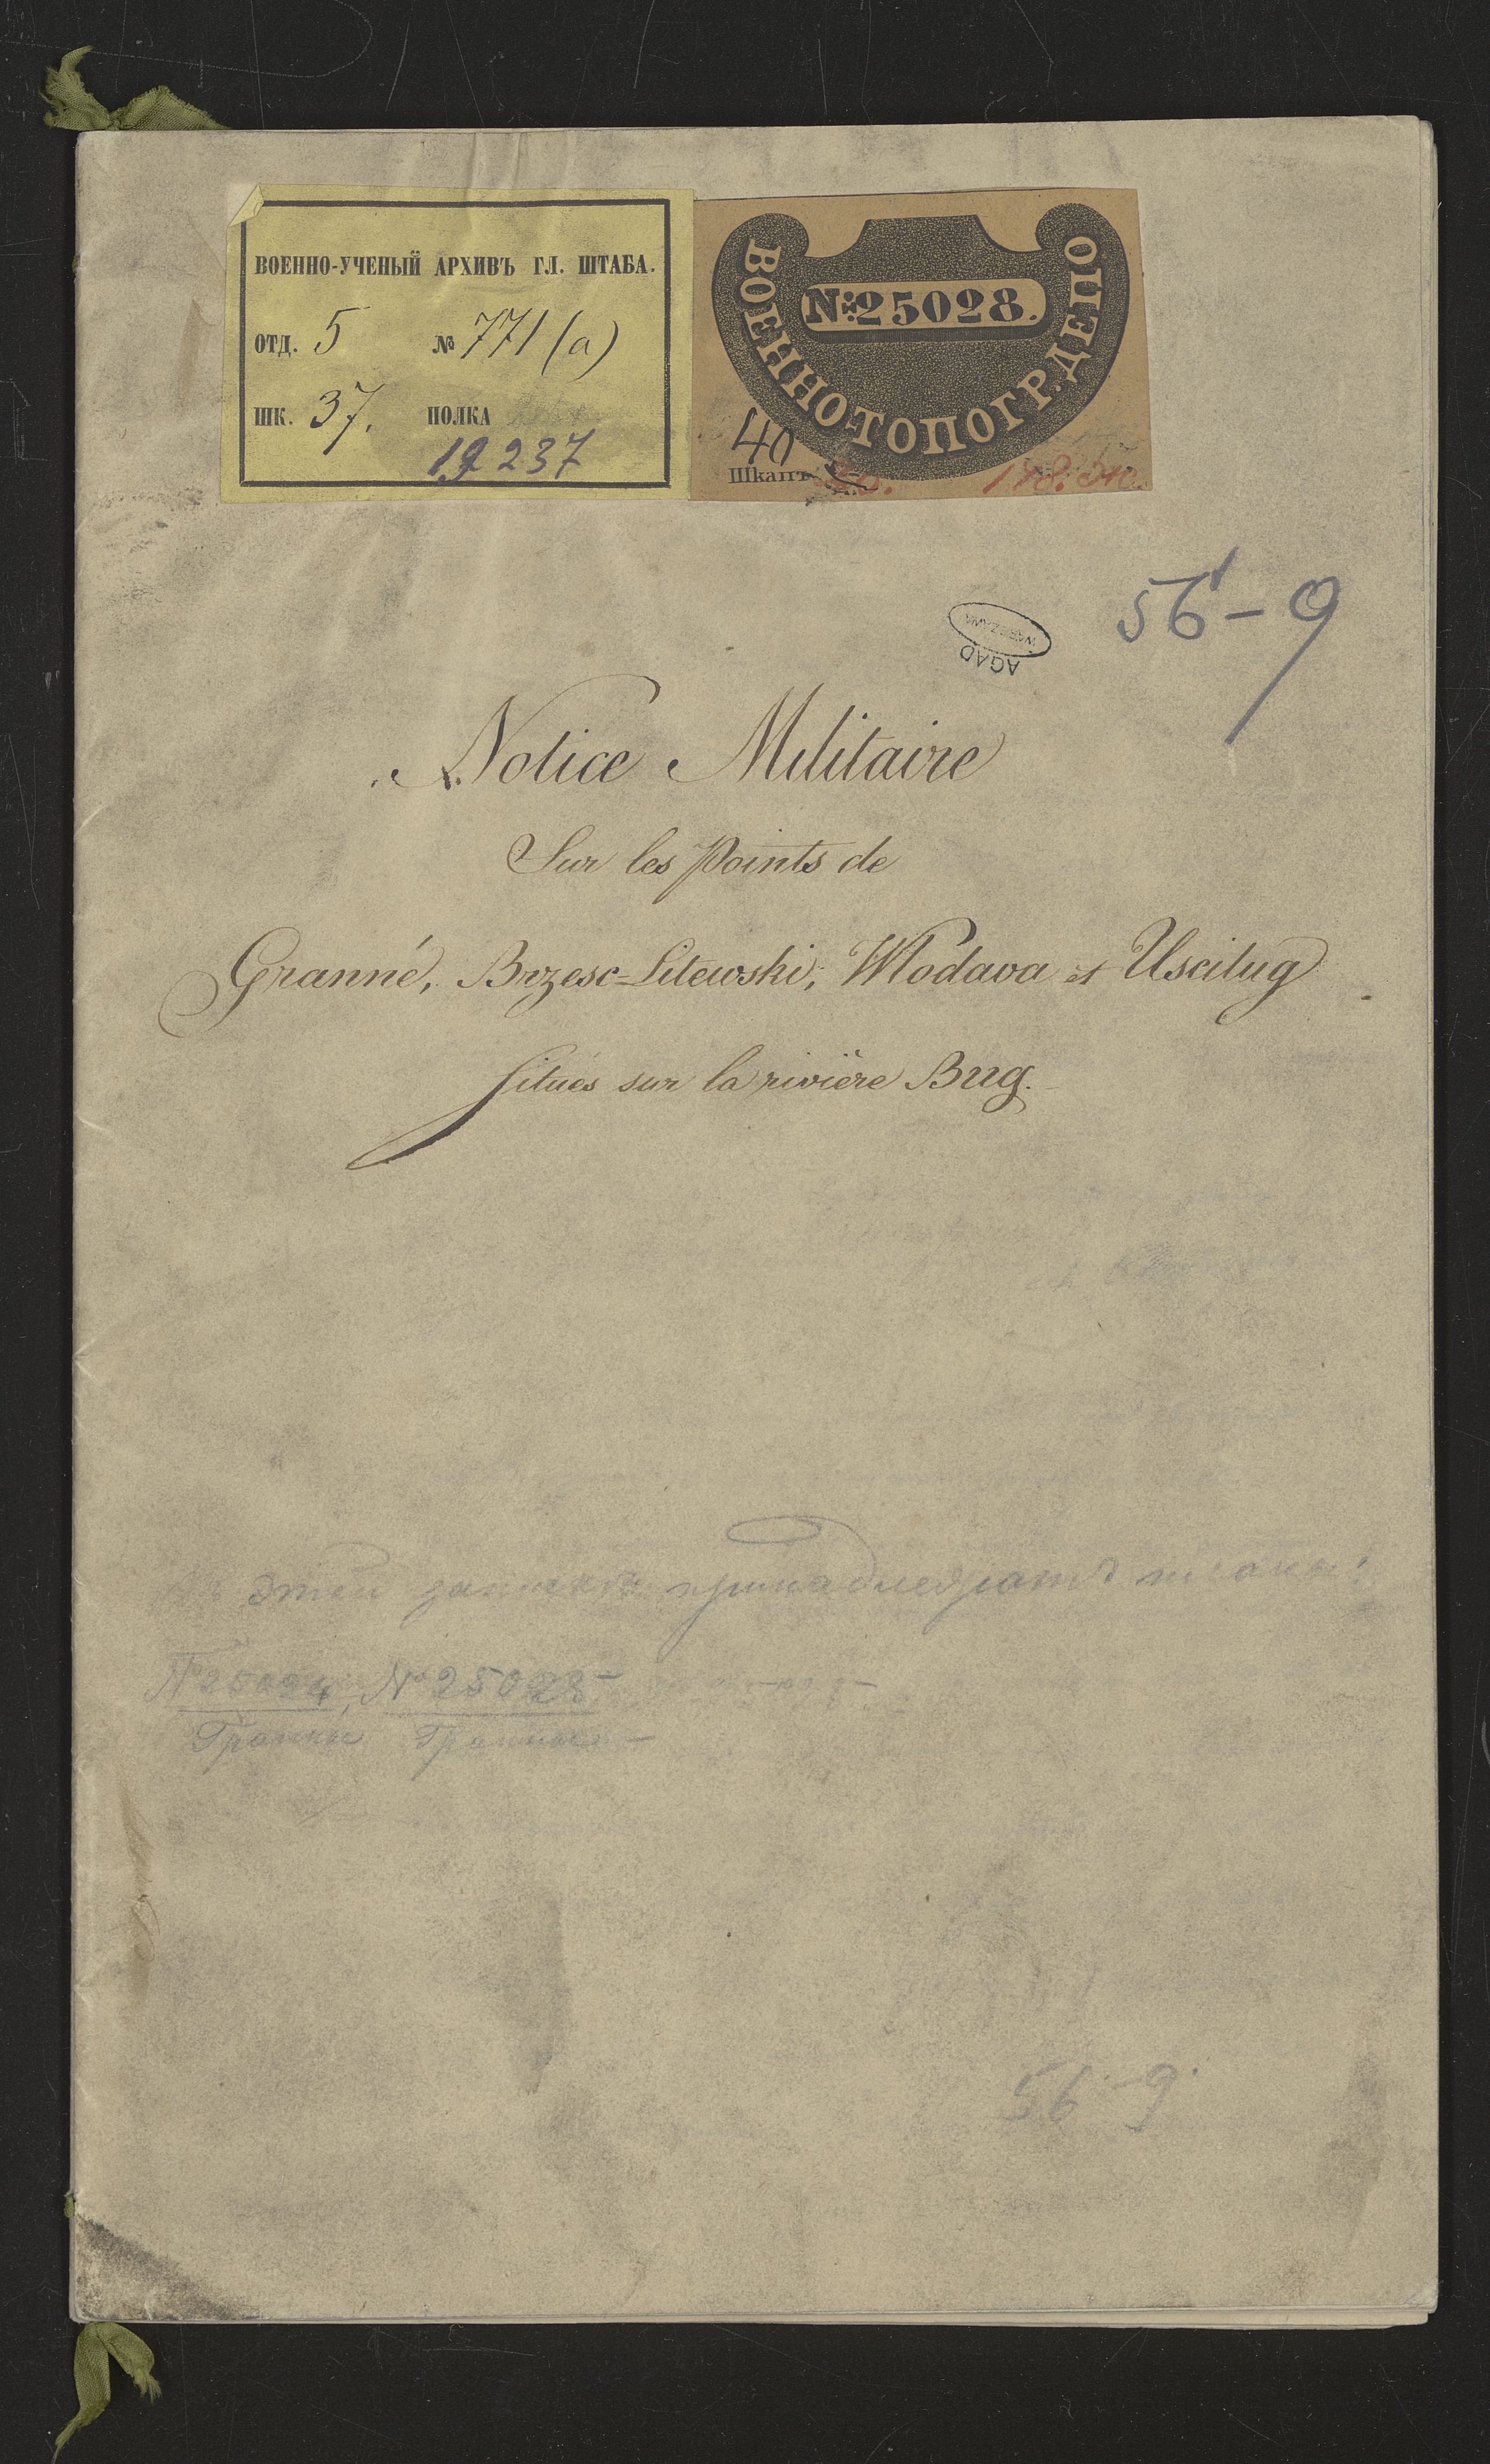 ВОЕННО-УЧЕНЫЙ АРХИВЪ ГЛ. ШТАБА.
ОТД. 5 № 771 (а)
ШК. 37. ПОЛКА
19237
ВОЕННО-ТОПОГР. ДЕПО
№ 25028.
40
Шкапъ
56-9
WARSZAWA
AGAD
Notice Militaire
Sur les Points de
Granné, Brzesc-Litewski, Wlodava et Uscilug
Situés sur la rivière Bug.
этой запискѣ принадлежатъ планы:
№ 25024, № 25028
56-9